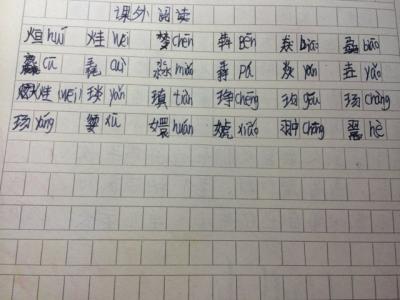 课外阅读
huī wei chēn 犇 Bēn 猋 biāo biāo
麤 cū 毳 cuì 淼 miǎo pá 焱 yàn 垚 yáo
(wei) 琰 yǎn 瑱 tiàn 琤 chēng 玽 gǒu 玚 chàng
玚 yáng xū 嬛 huán 婋 xiāo 翀 chōng 翯 hè